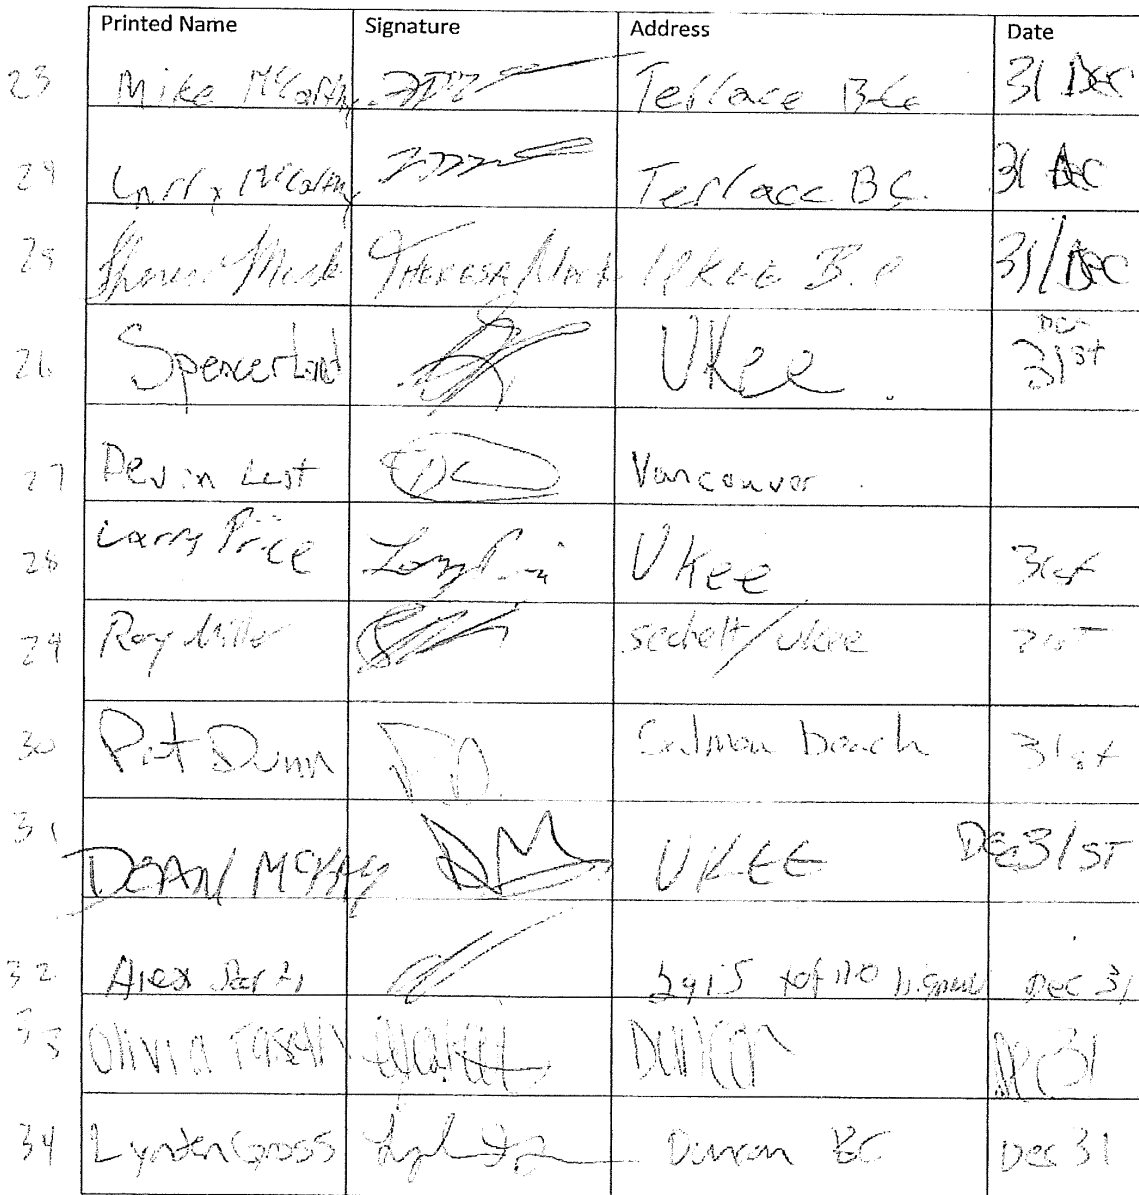 Printed Name Signature Address Date
23 Mike McCarthy Terrace B.C. 31 Dec
24 Larry McCarthy Terrace B.C. 31 Dec
25 Theresa Mack UKEE B.C 31/Dec
26 Spencer UKee Dec 31st
27 Devin Vancouver
28 Larry Price Larry UKee 31st
29 Ray Miller sechelt/ukee 31st
30 Pat Dunn P.D. Salmon beach 31st
31 DEAN McKAY DM UKEE Dec 31ST
32 Alex Dec 31
33 Olivia Duncan Dec 31
34 Lynden Gross Duncan BC Dec 31